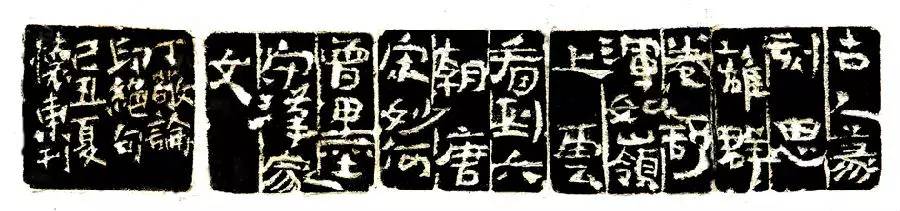 古人篆
刻思
離群
卷舒
渾如嶺
上雲
看到六
朝唐
宋妙何
曾墨
守漢家
文
丁敬論
印絕句
己丑夏
懷東刊